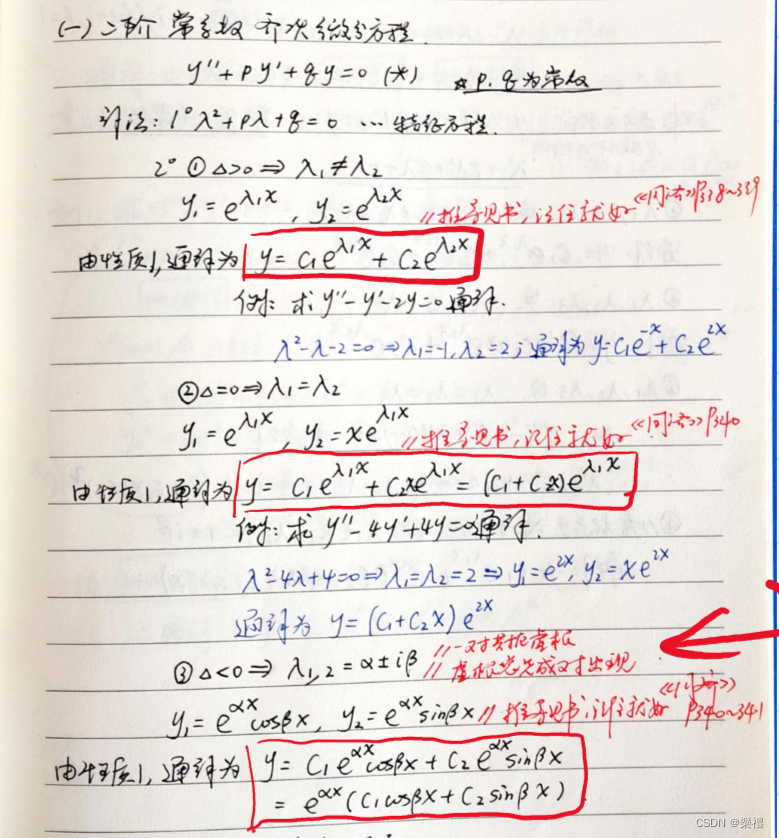 (一) 二阶常系数齐次微分方程.
y''+py'+qy=0 (*) ☆p.q为常数
计法: 1° λ²+pλ+q=0 …特征方程.
2° ①△>0⇒λ₁≠λ₂
y₁=e^{λ₁x}, y₂=e^{λ₂x} //推导见书,记住就好 《同济》P338~339
由性质1,通解为 y=C₁e^{λ₁x}+C₂e^{λ₂x}
例: 求y''-y'-2y=0通解.
λ²-λ-2=0⇒λ₁=-1,λ₂=2; 通解为y=C₁e^{-x}+C₂e^{2x}
②△=0⇒λ₁=λ₂
y₁=e^{λ₁x} y₂=xe^{λ₁x} //推导见书,记住就好 《同济》P340
由性质1,通解为 y=C₁e^{λ₁x}+C₂xe^{λ₁x}=(C₁+C₂x)e^{λ₁x}
例: 求y''-4y'+4y=0通解.
λ²-4λ+4=0⇒λ₁=λ₂=2⇒y₁=e^{2x}, y₂=xe^{2x}
通解为 y=(C₁+C₂x)e^{2x}
③△<0⇒λ₁,₂=α±iβ //一对共轭虚根
//虚根总是成对出现
y₁=e^{αx}cosβx, y₂=e^{αx}sinβx //推导见书,记住就好 《同济》P340~341
由性质1,通解为 y=C₁e^{αx}cosβx+C₂e^{αx}sinβx
=e^{αx}(C₁cosβx+C₂sinβx)
CSDN @樂禮